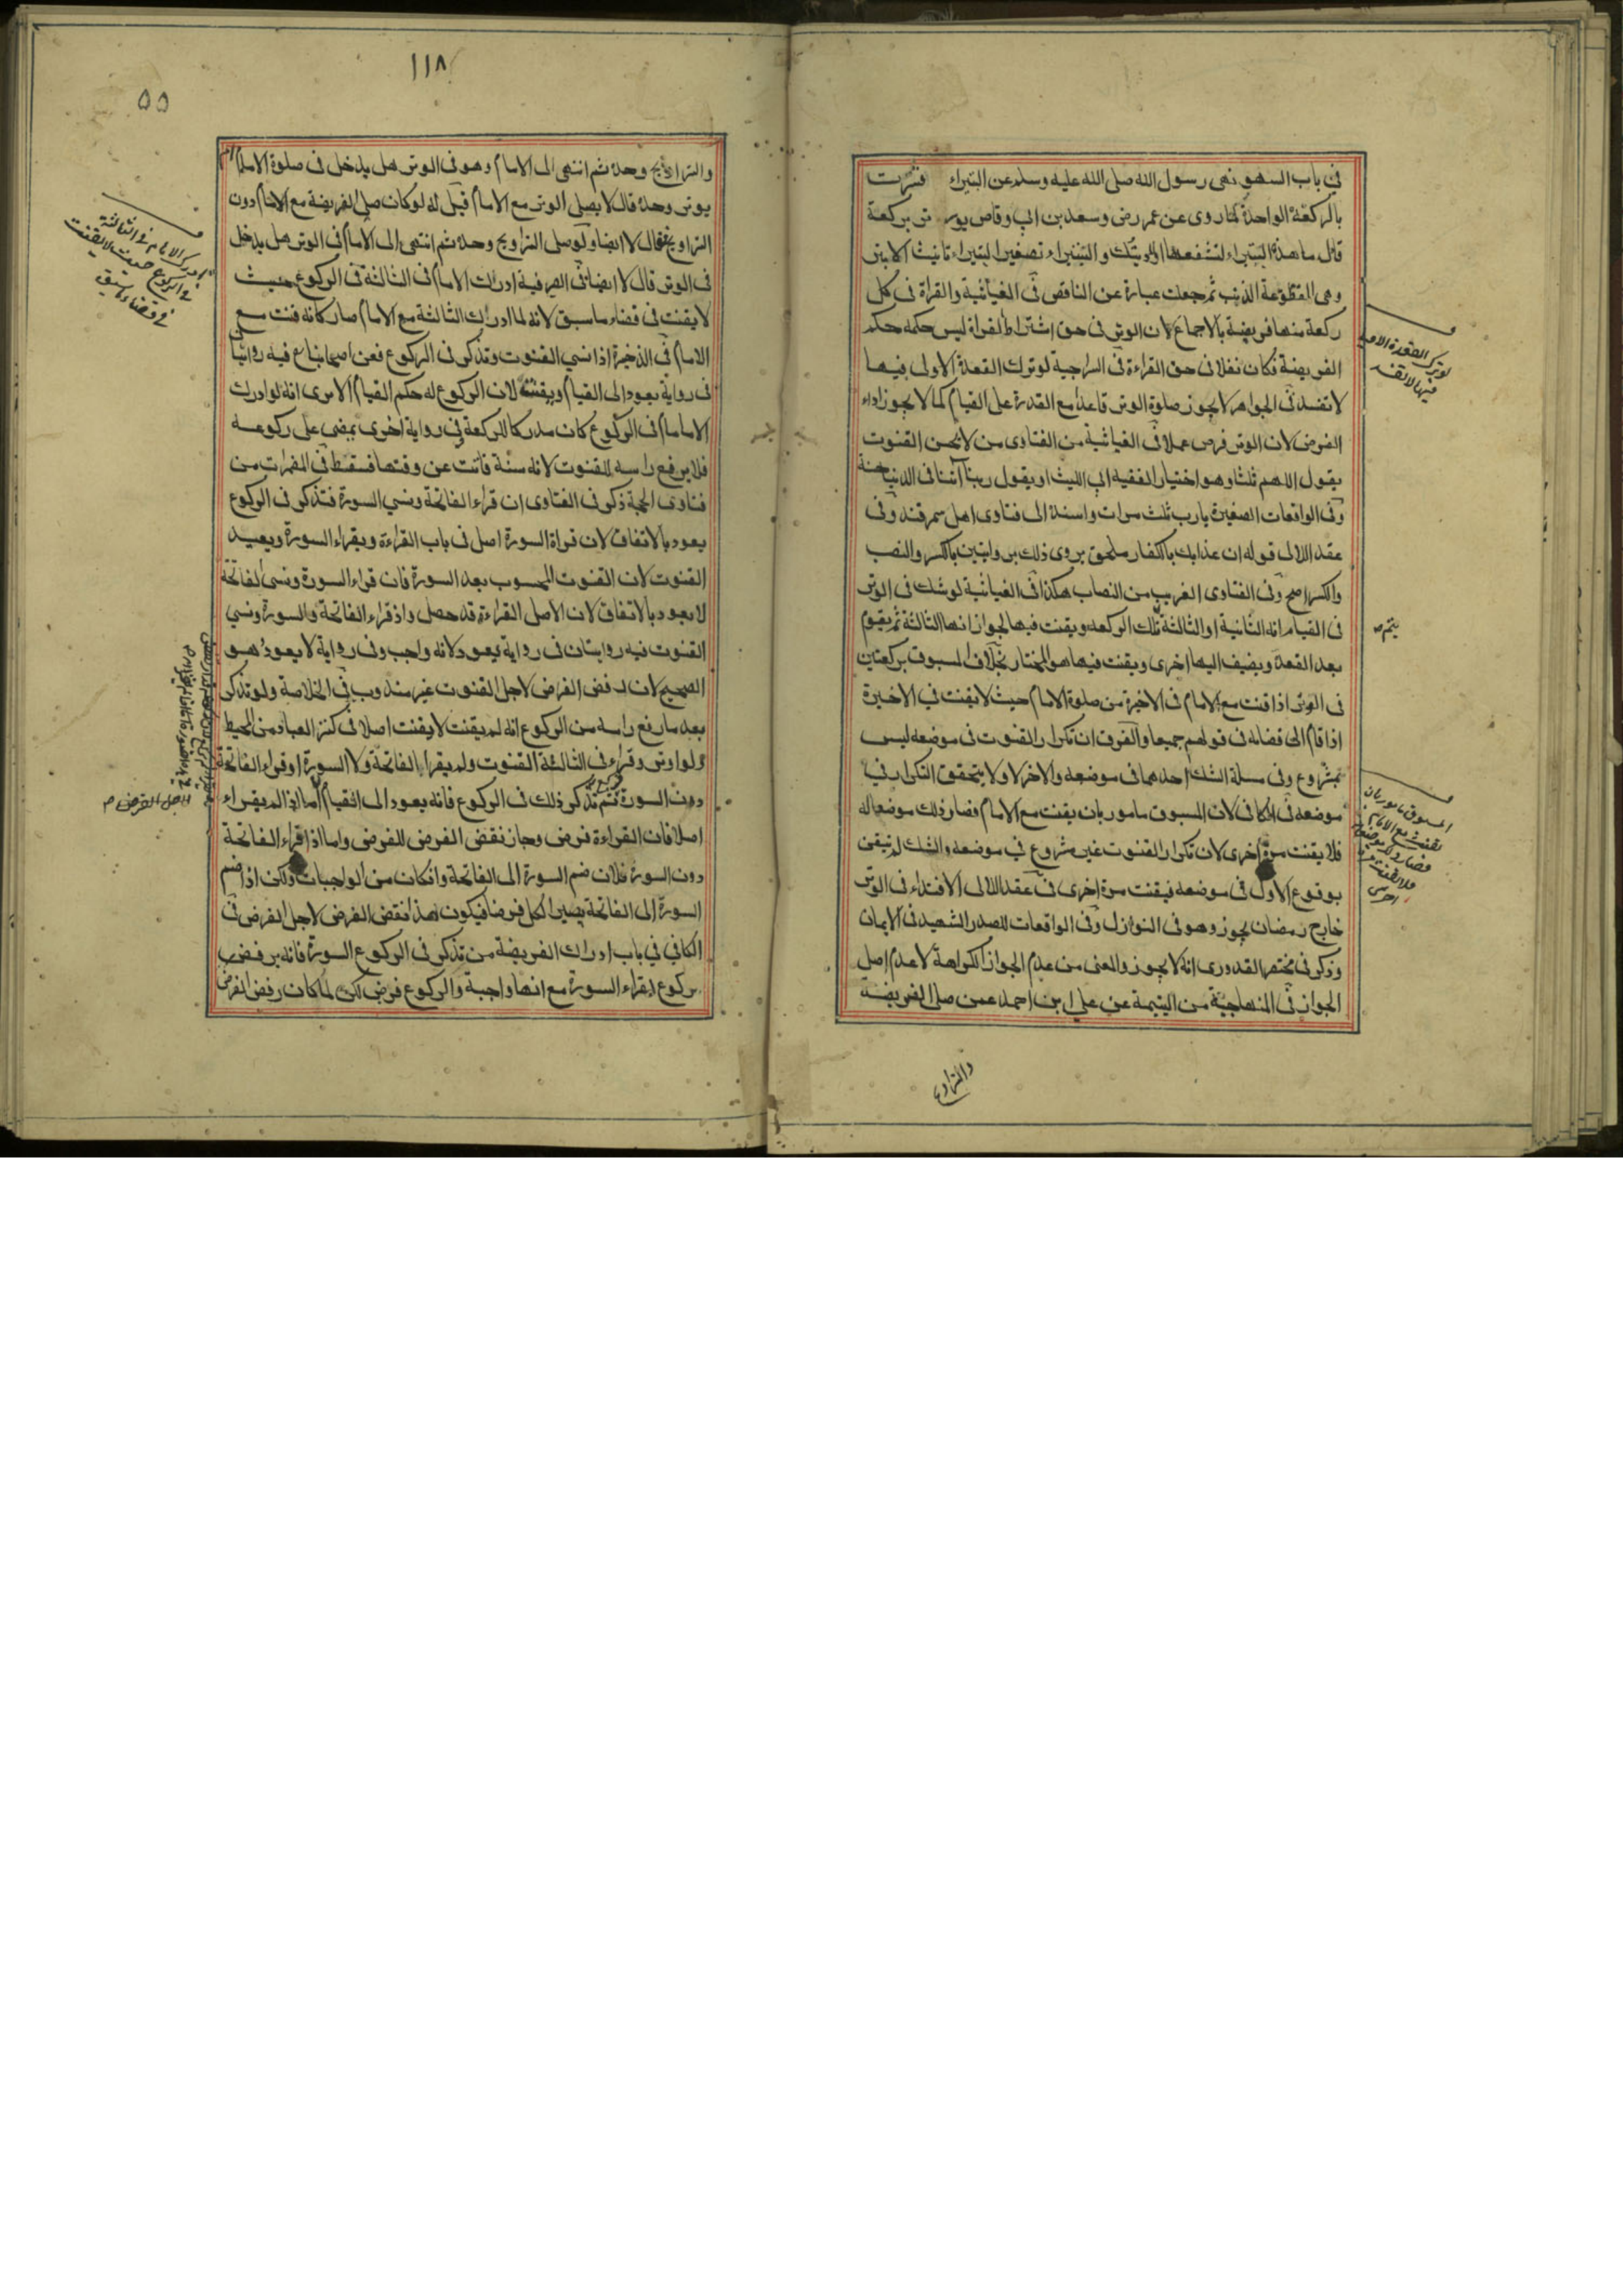 في باب السهو نهى رسول الله صلى الله عليه وسلم عن البتيراء فسرت
بالركعة الواحدة لما روى عن عمر رضى وسعد بن ابي وقاص يوتر بركعة
قال ما هذة البتيراء لتشفعها او لاوبتك والبتيراء تصغير البتيراء تانيث الابتر
وهى المقطوعة الذنب ثم جعلت عبارة عن الناقص فى الغياثية والقراة فى كل
ركعة منها فريضة بالاجماع لان الوتر فى حق اشتراط القراة ليس حكمه حكم
الفريضة فكان نفلا فى حق القراءة فى السراجية لوترك القعدة الاولى فيها
لا تفسد فى الجواهر لا يجوز صلوة الوتر قاعدا مع القدرة على القيام كما لا يجوز اداء
الفرض لان الوتر فرض عملا فى الغياثية من الفتاوى من لا يحسن القنوت
يقول اللهم ثلثا وهو اختيار الفقيه ابي الليث او يقول ربنا آتنا فى الدنيا حسنة
وفى الواقعات الصغيرة يارب ثلث مرات واسنده الى فتاوى اهل سمرقند وفى
عقد اللالى قوله ان عذابك بالكفار ملحق يروى ذلك بروايتين بالكسر والنصب
والكسر اصح وفى الفتاوى الغريب من النصاب هكذا فى الغياثية لوشك فى الوتر
فى القيام انه الثانية او الثالثة تلك الركعه ويقنت فيها لجواز انها الثالثة ثم يقوم
بعد القعدة ويضيف اليها اخرى ويقنت فيها هو المختار بخلاف المسبوق بركعتين
فى الوتر اذا قنت مع الامام فى الاخيرة من صلوة الامام حيث لا يقنت في الاخيرة
اذا قام الى قضائه فى قولهم جميعا والفرق ان تكرار القنوت فى موضعه ليس
بمشروع وفى مسلة الشك احدهما فى موضعه والاخر لا ولا يتحقق التكرار في
موضعه فى الكافى لان المسبوق مامور بان يقنت مع الامام فصار ذلك موضعا له
فلا يقنت مرة اخرى لان تكرار القنوت غير مشروع في موضعه والشك لم تيقن
بوقوع الاول فى موضعه فيقنت مرة اخرى فى عقد اللالى الاقتداء فى الوتر
خارج رمضان يجوز وهو فى النوازل وفى الواقعات للصدر الشهيد فى الايمان
وذكر فى مختصر القدورى انه لا يجوز والمعنى من عدم الجواز الكراهة لا عدم اصل
الجواز فى المنهاجية من اليتيمة عن على ابن احمد عمن صلى الفريضة
والتراويح
يتم ص
المسبوق مامور بان
يقنت مع الامام
١١٨
٥٥
والتراويح وحده ثم انتهى الى الامام وهو فى الوتر هل يدخل فى صلوة الامام
يوتر وحده قال لا يصلى الوتر مع الامام قيل له لو كان صلى الفريضة مع الامام دون
التراويح فقال لا ايضا ولو صلى التراويح وحده ثم انتهى الى الامام فى الوتر هل يدخل
فى الوتر قال لا ايضا فى الصيرفية ادرك الامام فى الثالثة فى الركوع حيث
لا يقنت فى قضاء ما سبق لانه لما ادرك الثالثة مع الامام صار كانه قنت مع
الامام فى الذخيرة اذا نسي القنوت وتذكر فى الركوع فعن اصحابنا رح فيه روايتان
فى رواية يعود الى القيام ويقنت لان الركوع له حكم القيام الا يرى انه لو ادرك
الامام فى الركوع كان مدركا للركعة في رواية اخرى يمضى على ركوعه
فلا يرفع راسه للقنوت لانه سنة فاتت عن وقتها فسقط فى المضمرات من
فتاوى الحجة ذكر فى الفتاوى ان قراء الفاتحة ونسي السورة فتذكر فى الركوع
يعود بالاتفاق لان قراة السورة اصل فى باب القراءة ويقراء السورة ويعيد
القنوت لان القنوت المحسوب بعد السورة فان قراء السورة ونسى الفاتحة
لا يعود بالاتفاق لان الاصل القراءة قد حصل واذ قراء الفاتحة والسورة ونسي
القنوت فيه روايتان فى رواية يعود لانه واجب وفى رواية لا يعود هو
الصحيح لان رفض الفرض لاجل القنوت غير مندوب فى الخلاصة ولو تذكر
بعد ما رفع راسه من الركوع انه لم يقنت لا يقنت اصلا فى كنز العباد من المحيط
ولو اوتر وقراء فى الثالثة القنوت ولم يقراء الفاتحة ولا السورة او قراء الفاتحة
دون السورة ثم تذكر ذلك فى الركوع فانه يعود الى القيام اما اذا لم يقراء
اصلا فان القراءة فرض وجاز نقض الفرض للفرض واما اذا قراء الفاتحة
دون السورة فلان ضم السورة الى الفاتحة وان كان من الواجبات ولكن اذا ضم
السورة الى الفاتحة يصير الكل فرضا فيكون هذا نقض الفرض لاجل الفرض فى
الكافي في باب ادراك الفريضة من تذكر فى الركوع السورة فانه يرفض
ركوع ليقراء السورة مع انها واجبة والركوع فرض لكن لما كان رفض الفرض
ادرك الامام فى الثالثة
فى الركوع حيث لا يقنت
فى قضاء ما سبق
لاجل الفرض ص